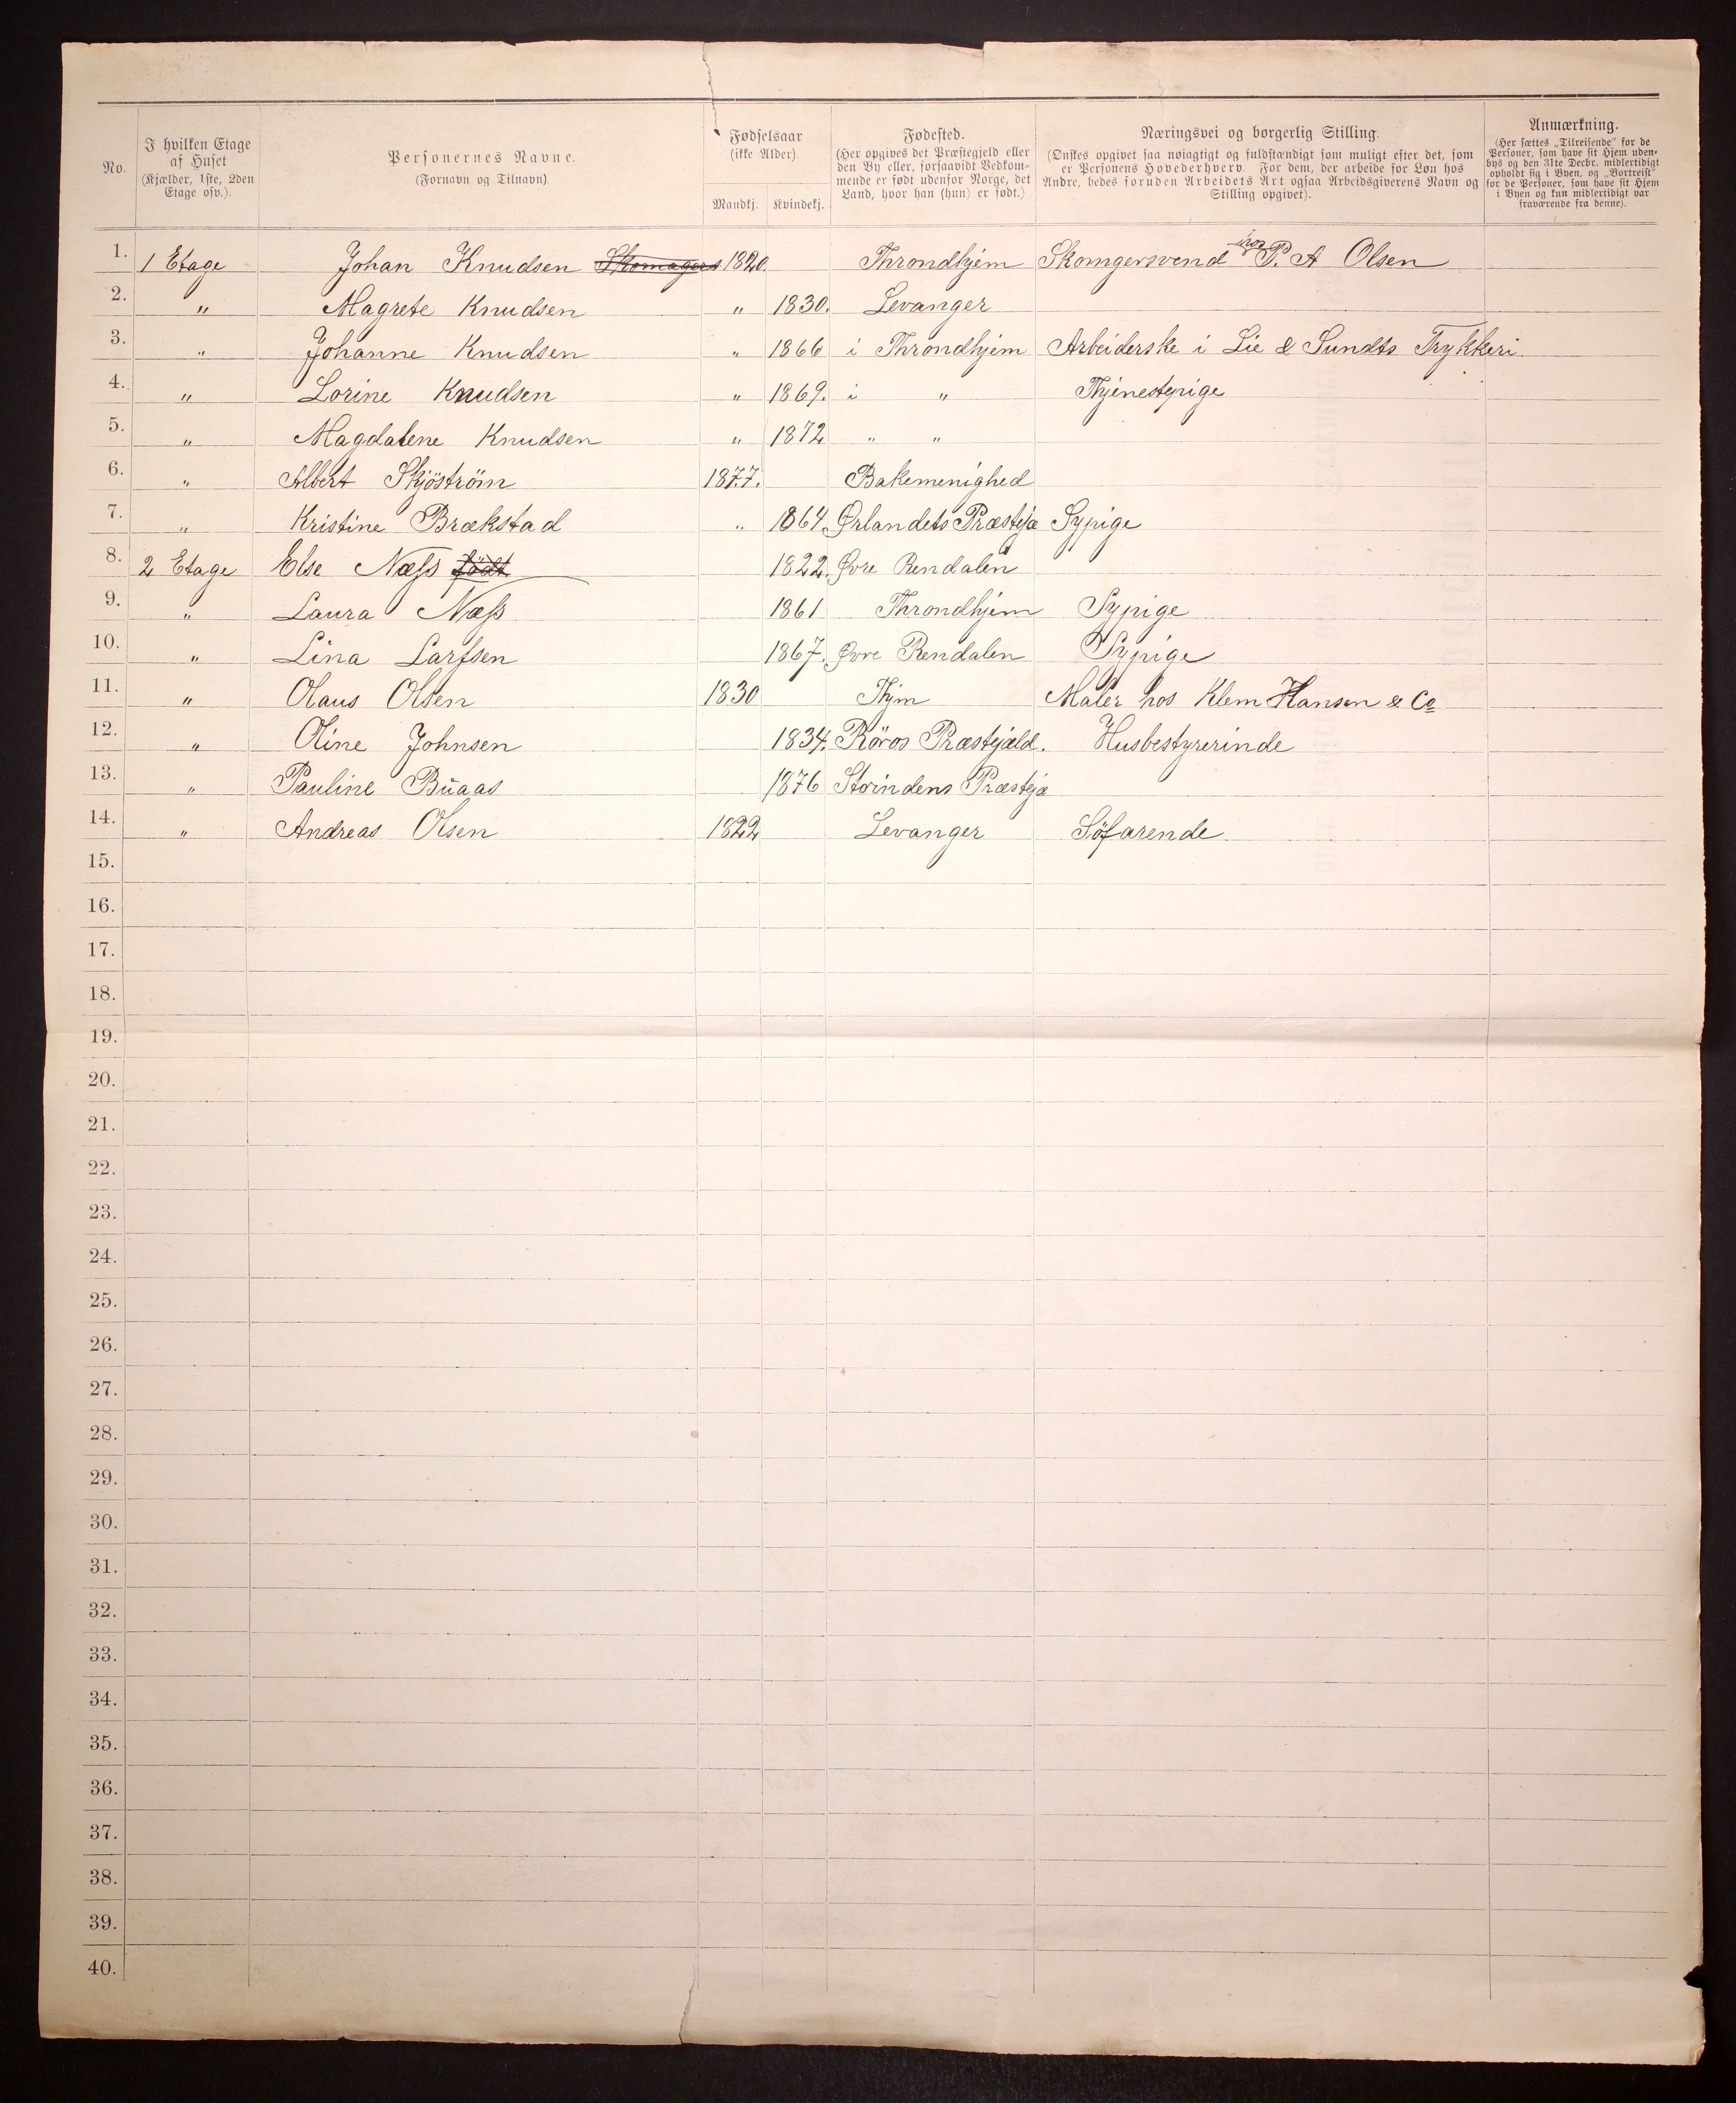 No.
I hvilken Etage
af Huset
(Kjælder, 1ste, 2den
Etage osv.).
Personernes Navne.
(Fornavn og Tilnavn)
Fødselsaar
(ikke Alder)
Mandkj. Kvindekj.
Fødested.
(Her opgives det Præstegjeld eller
den By eller, forsaavidt Vedkom-
mende er født udenfor Norge, det
Land, hvor han (hun) er født.)
Næringsvei og borgerlig Stilling.
(Ønskes opgivet saa nøiagtigt og fuldstændigt som muligt efter det, som
er Personens Hovederhverv. For dem, der arbeide for Løn hos
Andre, bedes foruden Arbeidets Art ogsaa Arbeidsgiverens Navn og
Stilling opgivet).
Anmærkning.
(Her sættes „Tilreisende“ for de
Personer, som have sit Hjem uden-
bys og den 31te Decbr. midlertidigt
opholdt sig i Byen, og „Bortreist“
for de Personer, som have sit Hjem
i Byen og kun midlertidigt var
fraværende fra denne).
1. 1 Etage Johan Knudsen Skomagers 1820. Throndhjem Skomgersvend hos P. A Olsen
2. " Magrete Knudsen " 1830. Levanger
3. " Johanne Knudsen " 1866 i Throndhjem Arbeiderske i Lie & Sundts Trykkeri
4. " Lorine Knudsen " 1869. i " Thjenestepige
5. " Magdalene Knudsen " 1872 " "
6. " Albert Skjöström 1877. Bakemenighed
7. " Kristine Brækstad " 1864. Ørlandets Præstejæ Sypige
8. 2 Etage Else Næss født 1822. Øvre Rendalen
9. " Laura Næss 1861 Throndhjem Sypige
10. " Lina Larssen 1867. Øvre Rendalen Sypige
11. " Olaus Olsen 1830 Thjm Maler hos Klem Hansen & Co
12. " Oline Johnsen 1834. Röros Præstejæld. Husbestyrerinde
13. " Pauline Buaas 1876 Storindens Præstejæ
14. " Andreas Olsen 1822 Levanger Söfarende
15.
16.
17.
18.
19.
20.
21.
22.
23.
24.
25.
26.
27.
28.
29.
30.
31.
32.
33.
34.
35.
36.
37.
38.
39.
40.